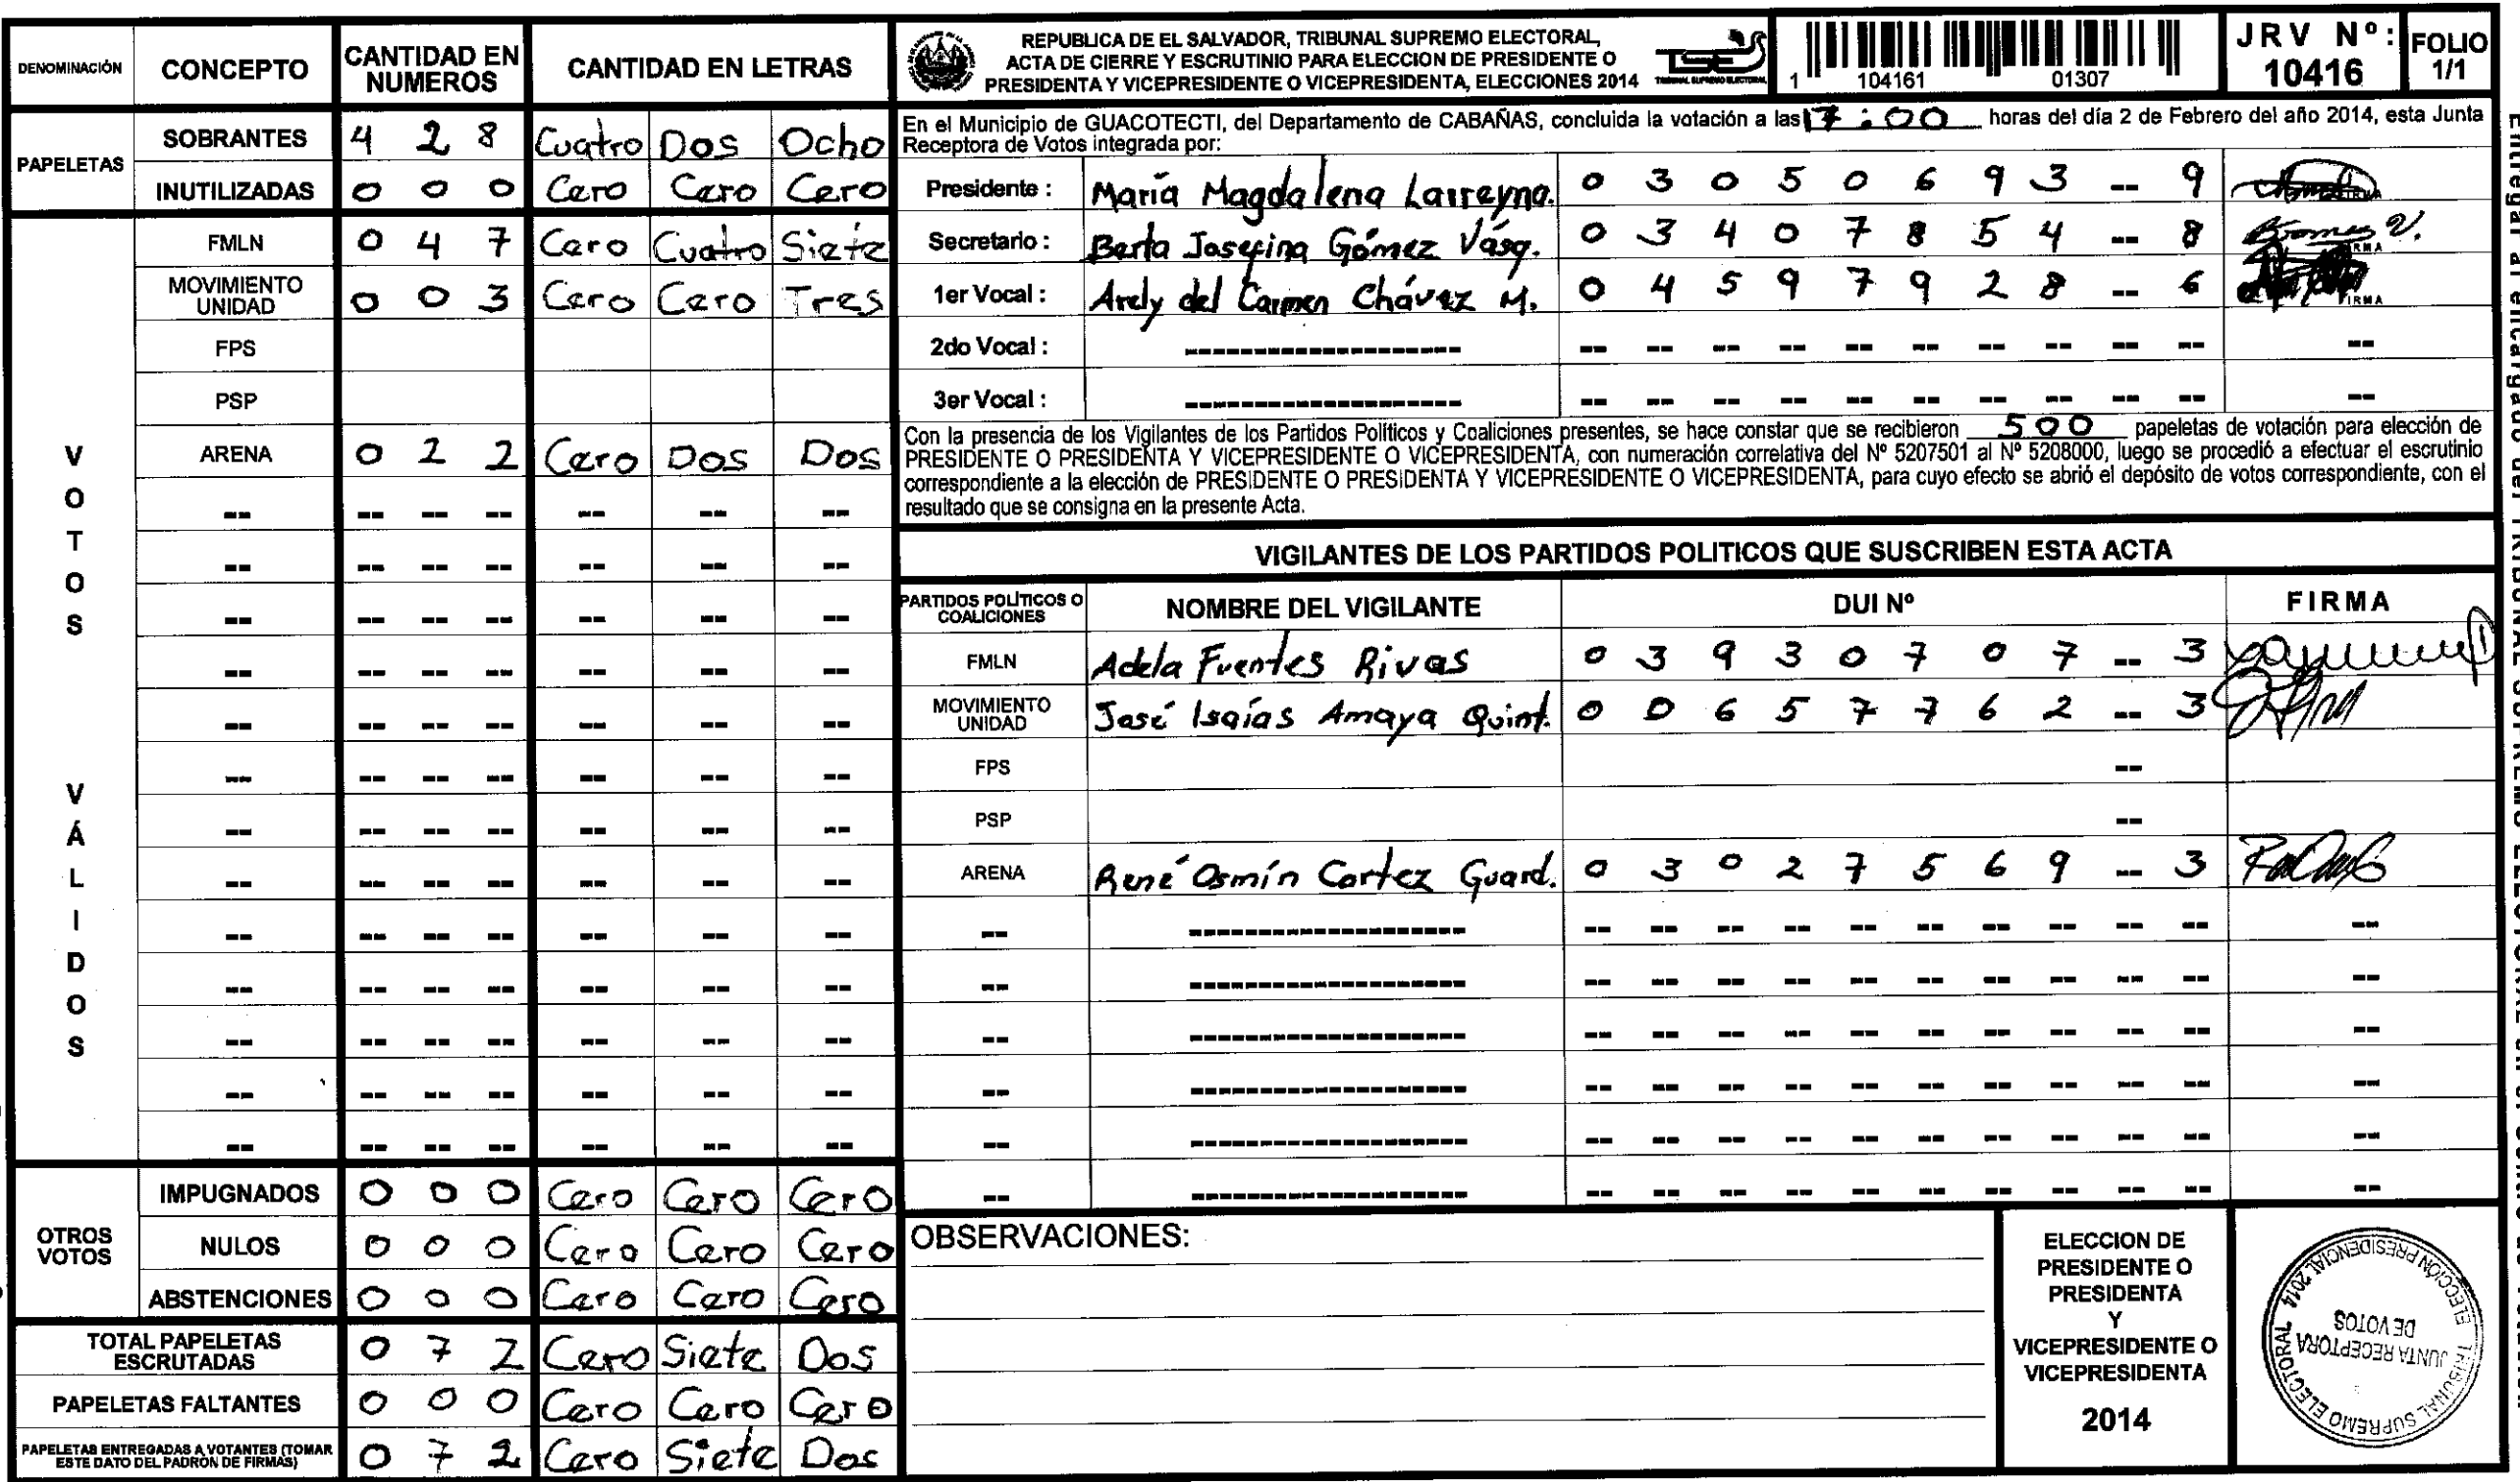 DENOMINACIÓN CONCEPTO CANTIDAD EN NUMEROS CANTIDAD EN LETRAS
PAPELETAS
SOBRANTES 4 2 8 Cuatro Dos Ocho
INUTILIZADAS 0 0 0 Cero Cero Cero
VOTOS VÁLIDOS
FMLN 0 4 7 Cero Cuatro Siete
MOVIMIENTO UNIDAD 0 0 3 Cero Cero Tres
FPS
PSP
ARENA 0 2 2 Cero Dos Dos
-- -- -- -- -- -- --
-- -- -- -- -- -- --
-- -- -- -- -- -- --
-- -- -- -- -- -- --
-- -- -- -- -- -- --
-- -- -- -- -- -- --
-- -- -- -- -- -- --
-- -- -- -- -- -- --
-- -- -- -- -- -- --
-- -- -- -- -- -- --
-- -- -- -- -- -- --
-- -- -- -- -- -- --
-- -- -- -- -- -- --
OTROS VOTOS
IMPUGNADOS 0 0 0 Cero Cero Cero
NULOS 0 0 0 Cero Cero Cero
ABSTENCIONES 0 0 0 Cero Cero Cero
TOTAL PAPELETAS ESCRUTADAS 0 7 2 Cero Siete Dos
PAPELETAS FALTANTES 0 0 0 Cero Cero Cero
PAPELETAS ENTREGADAS A VOTANTES (TOMAR ESTE DATO DEL PADRON DE FIRMAS) 0 7 2 Cero Siete Dos
REPUBLICA DE EL SALVADOR, TRIBUNAL SUPREMO ELECTORAL,
ACTA DE CIERRE Y ESCRUTINIO PARA ELECCION DE PRESIDENTE O
PRESIDENTA Y VICEPRESIDENTE O VICEPRESIDENTA, ELECCIONES 2014
TSE
TRIBUNAL SUPREMO ELECTORAL
1 104161 01307
JRV Nº: 10416
FOLIO 1/1
En el Municipio de GUACOTECTI, del Departamento de CABAÑAS, concluida la votación a las 17:00 horas del día 2 de Febrero del año 2014, esta Junta
Receptora de Votos integrada por:
Presidente : María Magdalena Larreyna. 0 3 0 5 0 6 9 3 -- 9 FIRMA
Secretario : Berta Josefina Gómez Vásq. 0 3 4 0 7 8 5 4 -- 8 FIRMA
1er Vocal : Arely del Carmen Chávez M. 0 4 5 9 7 9 2 8 -- 6 FIRMA
2do Vocal : -------------------- -- -- -- -- -- -- -- -- -- -- --
3er Vocal : -------------------- -- -- -- -- -- -- -- -- -- -- --
Con la presencia de los Vigilantes de los Partidos Políticos y Coaliciones presentes, se hace constar que se recibieron 500 papeletas de votación para elección de
PRESIDENTE O PRESIDENTA Y VICEPRESIDENTE O VICEPRESIDENTA, con numeración correlativa del Nº 5207501 al Nº 5208000, luego se procedió a efectuar el escrutinio
correspondiente a la elección de PRESIDENTE O PRESIDENTA Y VICEPRESIDENTE O VICEPRESIDENTA, para cuyo efecto se abrió el depósito de votos correspondiente, con el
resultado que se consigna en la presente Acta.
VIGILANTES DE LOS PARTIDOS POLITICOS QUE SUSCRIBEN ESTA ACTA
PARTIDOS POLÍTICOS O COALICIONES NOMBRE DEL VIGILANTE DUI Nº FIRMA
FMLN Adela Fuentes Rivas 0 3 9 3 0 7 0 7 -- 3
MOVIMIENTO UNIDAD José Isaías Amaya Quint. 0 0 6 5 7 7 6 2 -- 3
FPS --
PSP --
ARENA René Osmín Cortez Guard. 0 3 0 2 7 5 6 9 -- 3
-- -------------------- -- -- -- -- -- -- -- -- -- -- --
-- -------------------- -- -- -- -- -- -- -- -- -- -- --
-- -------------------- -- -- -- -- -- -- -- -- -- -- --
-- -------------------- -- -- -- -- -- -- -- -- -- -- --
-- -------------------- -- -- -- -- -- -- -- -- -- -- --
-- -------------------- -- -- -- -- -- -- -- -- -- -- --
OBSERVACIONES:
ELECCION DE
PRESIDENTE O
PRESIDENTA
Y
VICEPRESIDENTE O
VICEPRESIDENTA
2014
TRIBUNAL SUPREMO ELECTORAL
ELECCIÓN PRESIDENCIAL 2014
JUNTA RECEPTORA
DE VOTOS